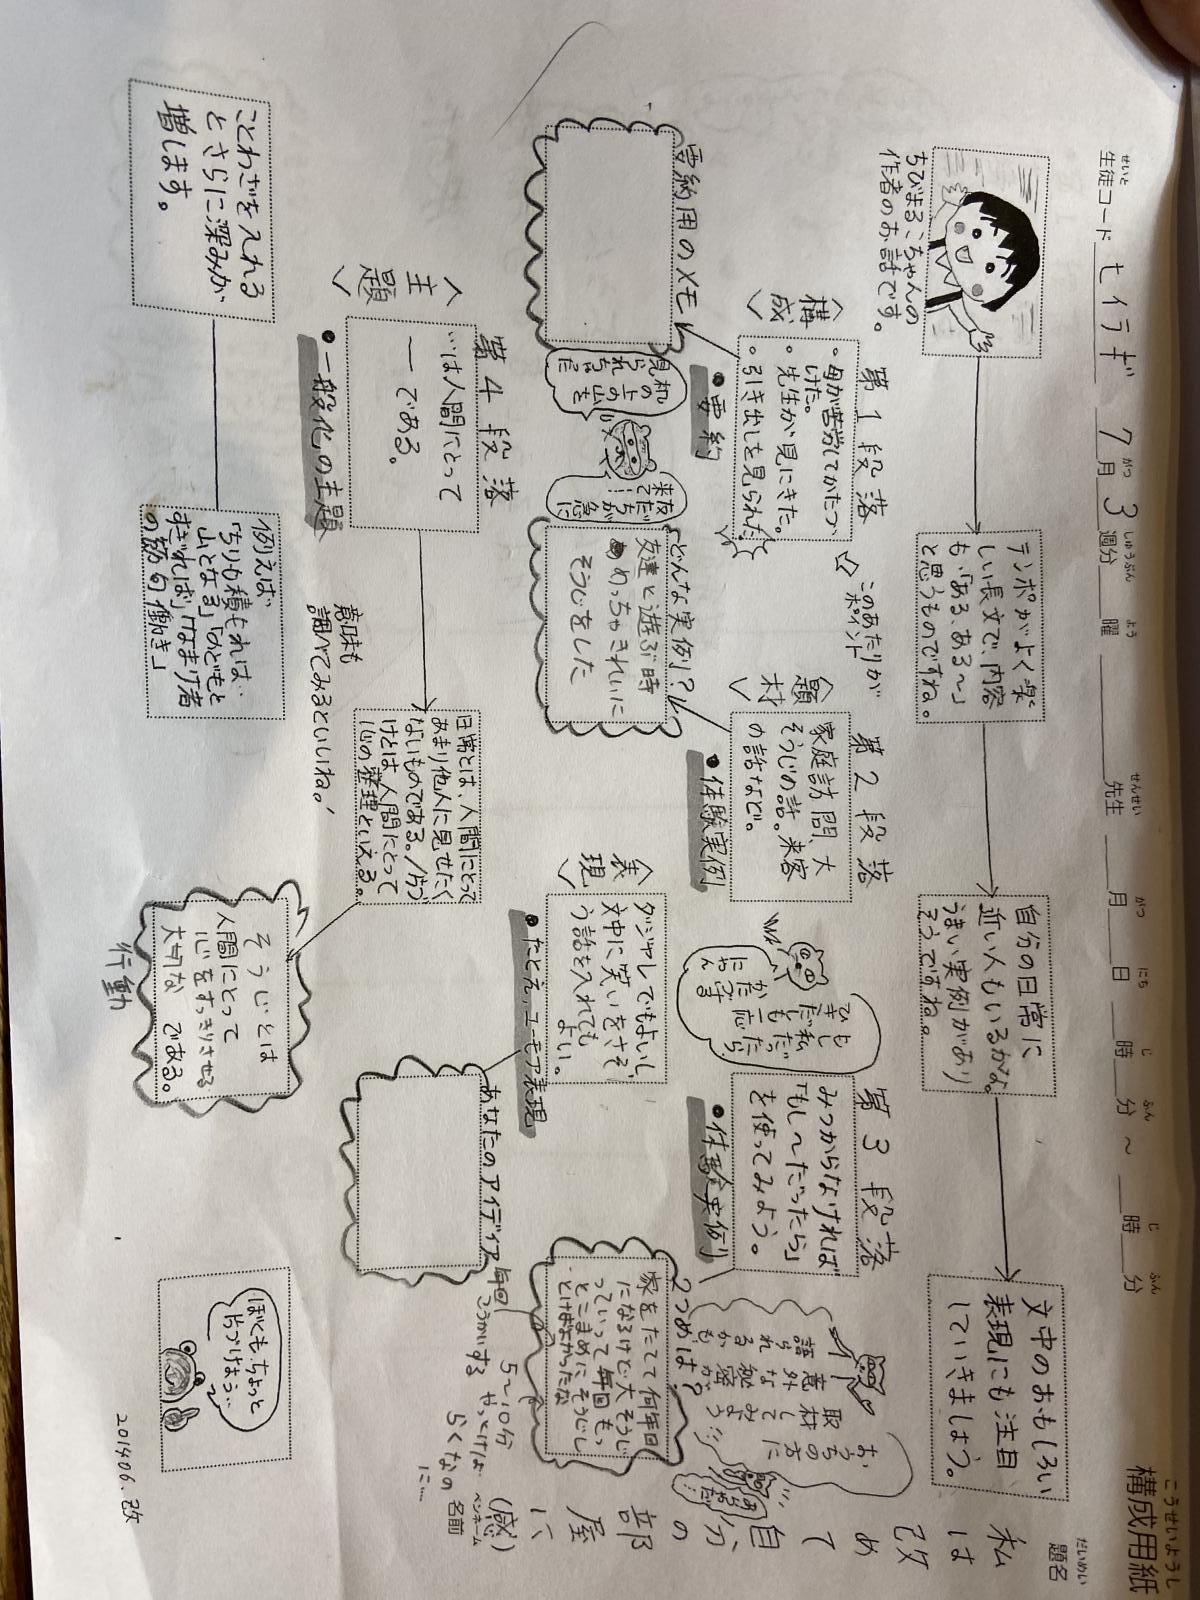 こうせいようし
構成用紙
せいと
生徒コード セイラギ 7月 3週分 曜 先生 月 日 時 分 ～ 時 分
がつ しゅうぶん よう せんせい がつ にち じ ふん じ ふん
だいめい
題名
私は改めて自分の部屋に
(感)
ペンネーム
名前
ちびまるこちゃんの
作者のお話です。
テンポがよく楽
しい長文で、内容
も、「ある、ある～」
と思うものですね。
自分の日常に
近い人もいるかな。
うまい実例があり
そうですね。
文中のおもしろい
表現にも注目
していきましょう。
第1段落
〈構成〉
・母が苦労してかたづ
けた。
・先生が見にきた。
・引き出しを見られた
●要約
要約用のメモ
このあたりが
ポイント
机の上の山も
見られちゃった
友だちが急に
来て…！
第2段落
〈題材〉
家庭訪問、大
そうじの話。来客
の話など。
●体験実例
どんな実例？
友達と遊ぶ時
めっちゃきれいに
そうじをした
もし私だったら
ひきだしも一応
かたづす
にゃん
第3段落
みつからなければ
「もし～だったら」
を使ってみよう。
●体験実例
2つめは？
家をたてて何年目
になるけど大そうじ
っていって毎回もっ
とこまめにそうじし
とけばよかったな
毎回
こうかいする
5～10分
やっとけば
らくなの
に…
おうちの方に
取材してみよう
意外な秘密が
語られるかも
〈表現〉
ダジャレでもよいし
文中に笑いをさそ
う話を入れても
よい。
●たとえ、ユーモア表現
あなたのアイディア
第4段落
〈主題〉
…は人間にとって
―である。
●一般化の主題
日常とは、人間にとって
あまり他人に見せたく
ないものである。/片づ
けとは人間にとって
心の整理といえる。
そうじとは
人間にとって
心をすっきりさせる
大切な である。
行動
ことわざを入れる
とさらに深みが
増します。
例えば、
「ちりも積もれば…
山となる」「のどもと
すぎれば」「なまけ者
の節句働き」
意味も
調べてみるといいね！
ぼくも、ちょっと
片づけよう…
201406.改